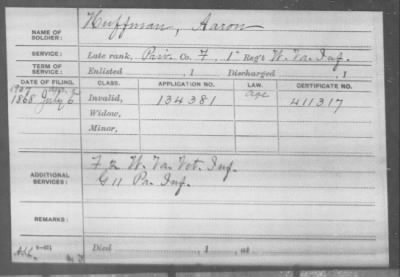 NAME OF SOLDIER: Huffman, Aaron
SERVICE: Late rank, Priv. Co. F, 1" Reg't W. Va. Inf.
TERM OF SERVICE: Enlisted , 1 Discharged , 1
DATE OF FILING. CLASS. APPLICATION NO. LAW. CERTIFICATE NO.
1907
1868 July 6 Invalid, 134381 age 411317
Widow,
Minor,
ADDITIONAL SERVICES: F 2 W. Va. Vet. Inf.
G 11 Pa. Inf.
REMARKS:
Died , 1